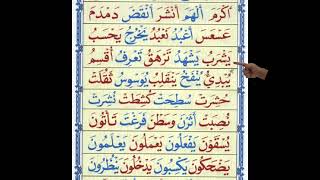 اَكْرَمَ اَلْهَمَ اَنْشَرَ اَنْقَضَ دَمْدَمَ
عَسْعَسَ اَعْبُدُ نَعْبُدُ يَخْرُجُ يَحْسَبُ
يَشْرَبُ يَشْهَدُ تَرْهَقُ تَعْرِفُ اُقْسِمُ
يُبْدِئُ يُنْفَخُ يَنْقَلِبُ يُوَسْوِسُ ثَقُلَتْ
حُشِرَتْ سُطِحَتْ كُشِطَتْ نُشِرَتْ
نُصِبَتْ اَثَرْنَ وَسَطْنَ فَرَغْتَ تَاْتُوْنَ
يُسْقَوْنَ يَفْعَلُوْنَ يَعْمَلُوْنَ يَعْلَمُوْنَ
يَضْحَكُوْنَ يَكْسِبُوْنَ يَدْخُلُوْنَ يَنْظُرُوْنَ